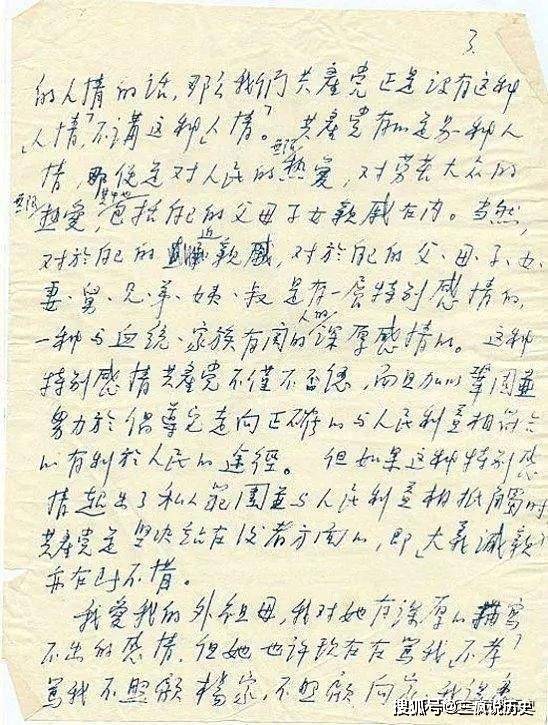 3
的人情的话,那么我們共產党正是没有这种
「人情」,不講这种「人情」。共產党有的是另一种人
情,那便是对人民的無限热爱,对劳苦大众的
無限热爱,其中也包括自己的父母子女親戚在内。当然,
对於自己的近親戚,对於自己的父、母、子、女、
妻、舅、兄、弟、姨、叔是有一层特别感情的,
一种与血统、家族有関的人的深厚感情的。这种
特别感情共產党不僅不否認,而且加以鞏固並
努力於倡導它走向正確的与人民利益相符合
的有利於人民的途徑。但如果这种特别感
情超出了私人範围並与人民利益相抵触时
共產党是坚决站在後者方面的,即「大義滅親」
亦在所不惜。
我爱我的外祖母,我对她有深厚的描写
不出的感情,但她也许现在在罵我「不孝」
罵我不照顧楊家,不照顧向家,我得
搜狐号@三疯说历史